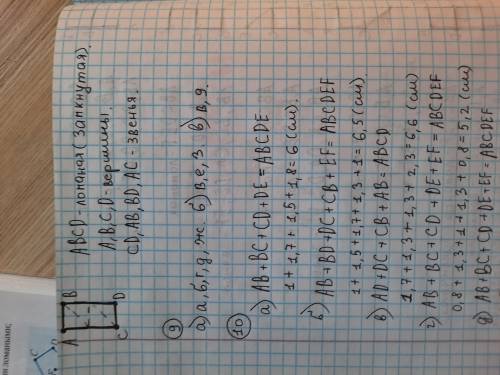 A B
C D
ABCD - ломаная (замкнутая).
A, B, C, D - вершины.
CD, AB, BD, AC - звенья.
9
а) а, б, г, д, ж. б) в, е, з. в) в, д.
10
а) AB + BC + CD + DE = ABCDE
1 + 1,7 + 1,5 + 1,8 = 6 (см)
б) AB + BD + DC + CB + EF = ABCDEF
1 + 1,5 + 1,7 + 1,3 + 1 = 6,5 (см)
в) AD + DC + CB + AB = ABCD
1,7 + 1,3 + 1,3 + 2,3 = 6,6 (см)
г) AB + BC + CD + DE + EF = ABCDEF
0,8 + 1,3 + 1 + 1,3 + 0,8 = 5,2 (см)
д) AB + BC + CD + DE + EF = ABCDEF
ломаными;
C
D